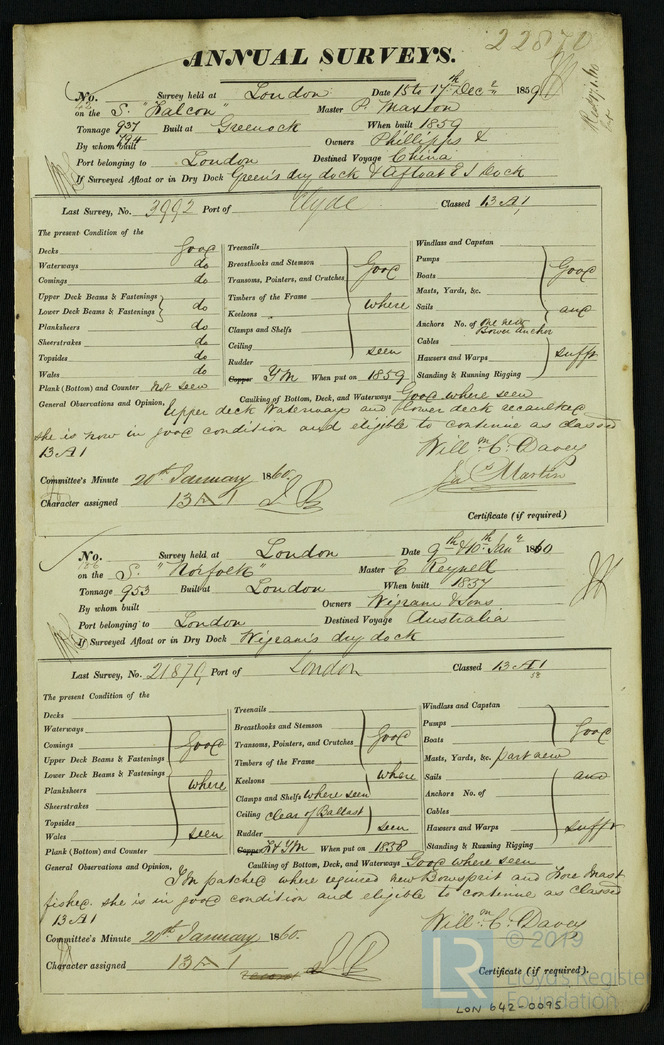 22870
ANNUAL SURVEYS.
No. 42 Survey held at London Date 15 to 17th Decr 1859
on the S. "Falcon" Master P. Maxton
Tonnage 937 794 Built at Greenock When built 1859
By whom built Owners Phillipps &
Port belonging to London Destined Voyage China
If Surveyed Afloat or in Dry Dock Green's dry dock & afloat E I Dock
Last Survey, No. 3992 Port of Clyde Classed 13 A 1
The present Condition of the
Decks good
Waterways do
Comings do
Upper Deck Beams & Fastenings
Lower Deck Beams & Fastenings } do
Planksheers do
Sheerstrakes do
Topsides do
Wales do
Plank (Bottom) and Counter Not seen
Treenails
Breasthooks and Stemson
Transoms, Pointers, and Crutches Good
Timbers of the Frame
Keelsons where
Clamps and Shelfs
Ceiling seen
Rudder
Copper YM When put on 1859
Windlass and Capstan
Pumps
Boats Good
Masts, Yards, &c.
Sails and
Anchors No. of one new Bower anchor
Cables
Hawsers and Warps sufft
Standing & Running Rigging
Caulking of Bottom, Deck, and Waterways Good where seen
General Observations and Opinion, Upper deck Waterways and lower deck recaulked
she is now in good condition and eligible to continue as classed
13 A 1
Willm. C. Davey
Jas Martin
Committee's Minute 20th January 1860.
Character assigned 13 A 1
Certificate (if required)
No. 126 Survey held at London Date 9th & 10th Jany 1860
on the S. "Norfolk" Master C Reynell
Tonnage 953 Built at London When built 1857
By whom built Owners Wigram & Sons
Port belonging to London Destined Voyage Australia
If Surveyed Afloat or in Dry Dock Wigram's dry dock
Last Survey, No. 21870, Port of London Classed 13 A 1
58
The present Condition of the
Decks
Waterways
Comings Good
Upper Deck Beams & Fastenings
Lower Deck Beams & Fastenings
Planksheers where
Sheerstrakes
Topsides
Wales seen
Plank (Bottom) and Counter
Treenails
Breasthooks and Stemson
Transoms, Pointers, and Crutches Good
Timbers of the Frame
Keelsons where
Clamps and Shelfs where seen
Ceiling clear of Ballast
Rudder seen
Copper F & YM When put on 1858
Windlass and Capstan
Pumps
Boats Good
Masts, Yards, &c. part new
Sails and
Anchors No. of
Cables
Hawsers and Warps sufft
Standing & Running Rigging
Caulking of Bottom, Deck, and Waterways Good where seen
General Observations and Opinion, YM patched where required new Bowsprit and Fore Mast
fished. she is in good condition and eligible to continue as classed
13 A 1
Willm. C. Davey
Committee's Minute 20th January 1860.
Character assigned 13 A 1
Certificate (if required).
LR © 2019
Lloyd's Register
Foundation
LON 642-0095